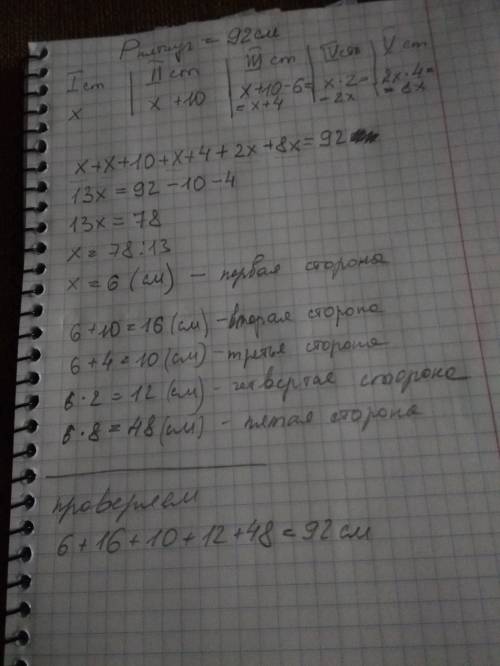 Pпятиуг = 92 см
I ст | II ст | III ст | IV ст | V ст
x | x + 10 | x+10-6= | x·2= | 2x·4=
= x+4 | = 2x | = 8x
x+x+10+x+4+2x+8x=92
13x = 92 - 10 - 4
13x = 78
x = 78:13
x = 6 (см) - первая сторона
6 + 10 = 16 (см) - вторая сторона
6 + 4 = 10 (см) - третье сторона
6 · 2 = 12 (см) - четвертая сторона
6 · 8 = 48 (см) - пятая сторона
проверяем
6 + 16 + 10 + 12 + 48 = 92 см